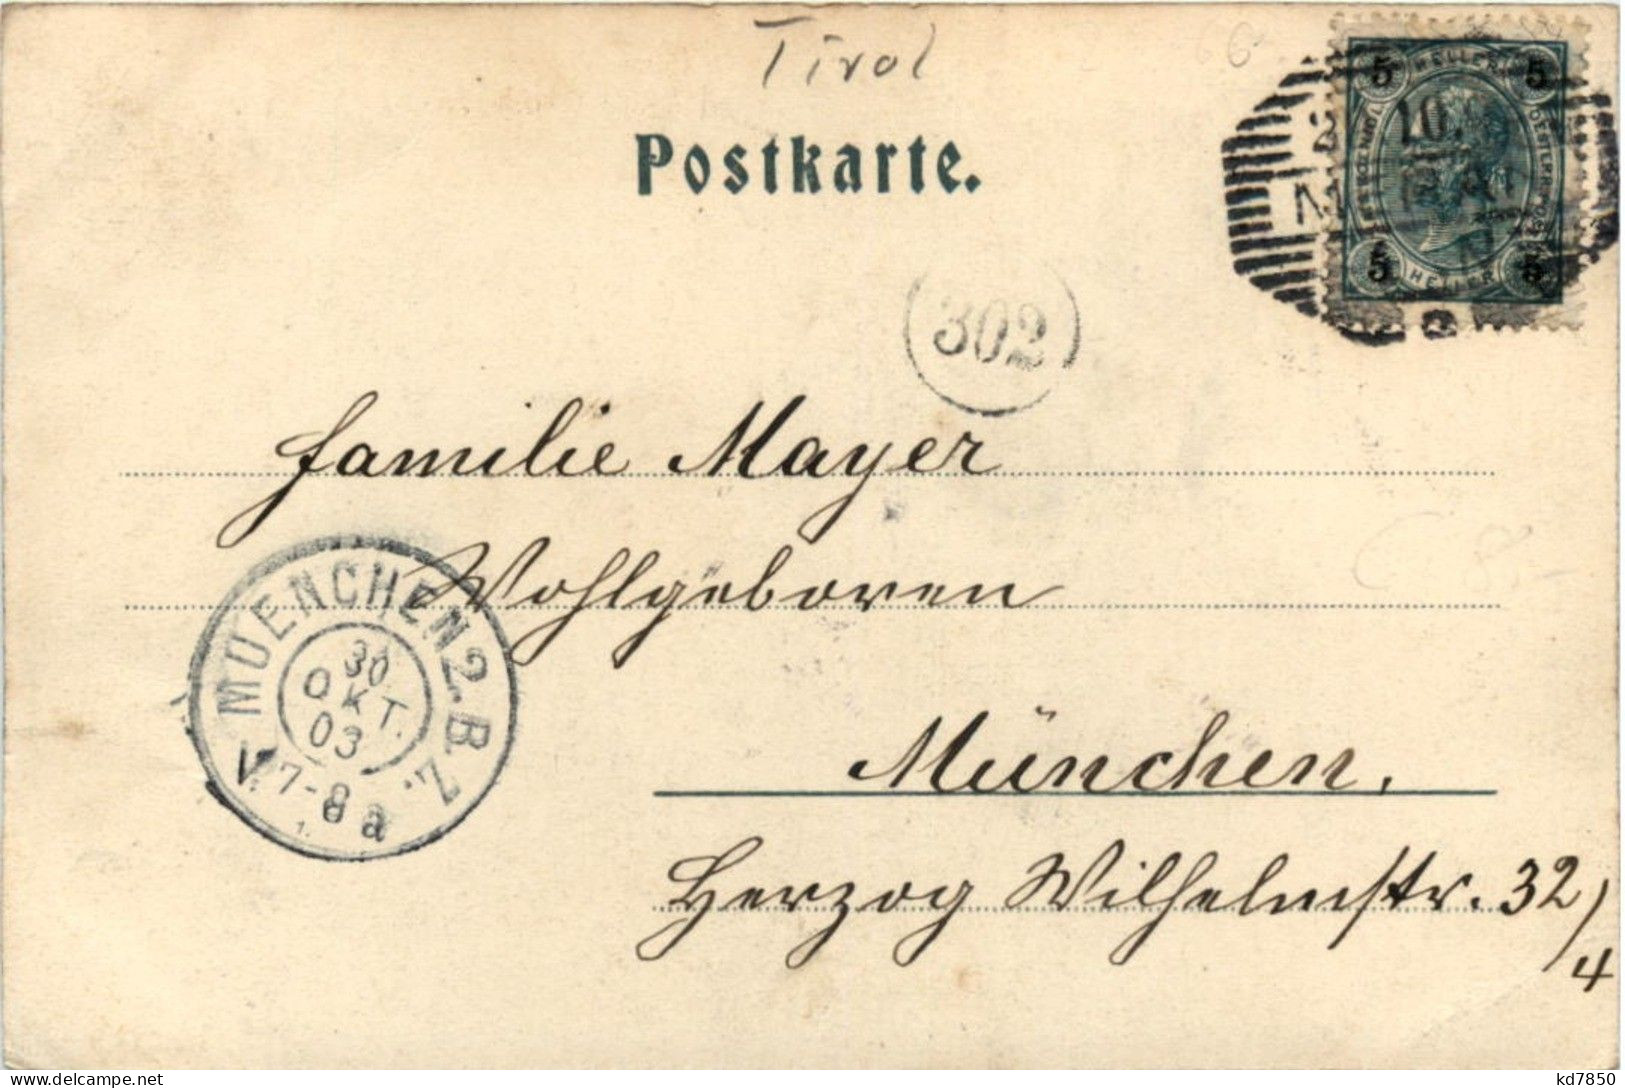 Tirol
Postkarte.
5 HELLER 5
10.
5 HELLER 5
302
Familie Mayer
Wohlgeboren
MUENCHEN 2. B. Z.
30
OKT.
03
V. 7-8 a
München,
Herzog Wilhelmstr. 32/4
kd7850